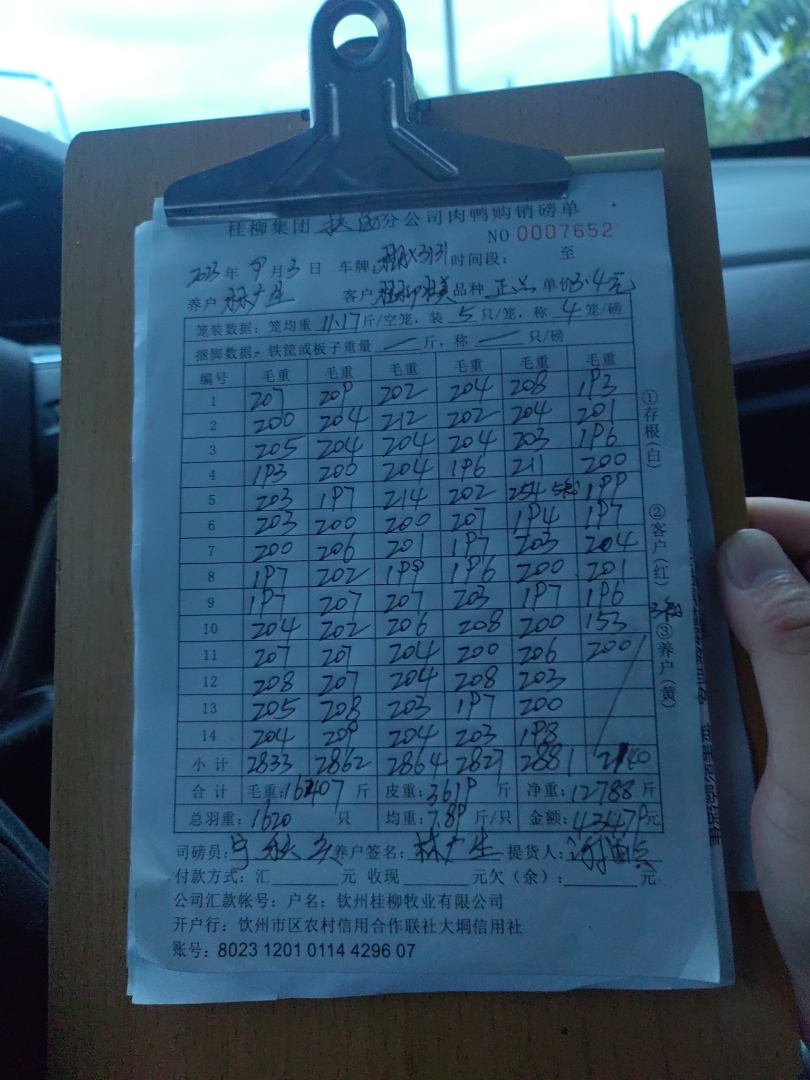 桂柳集团 扶绥 分公司肉鸭购销磅单
NO 0007652
2023年 9月3日 车牌: 时间段: 至
养户 林广生 客户 品种 正品 单价 3.4元
笼装数据: 笼均重 11.17 斤/空笼, 装 5 只/笼, 称 4 笼/磅
捆脚数据: 铁筐或板子重量 — 斤, 称 — 只/磅
编号 毛重 毛重 毛重 毛重 毛重 毛重
1 207 209 202 204 208 193
2 200 204 212 202 204 201
3 205 204 204 204 203 196
4 193 200 204 196 211 200
5 203 197 214 202 254 199
6 203 200 200 207 194 197
7 200 206 201 197 203 204
8 197 202 199 196 200 201
9 197 207 207 203 197 196
10 204 202 206 208 200 153
11 207 207 204 200 206 200
12 208 207 204 208 203
13 205 208 203 197 200
14 204 209 204 203 198
小计 2833 2862 2864 2827 2881 2140
合计 毛重: 16407 斤 皮重: 3619 斤 净重: 12788 斤
总羽重: 1620 只 均重: 7.89 斤/只 金额: 43479元
司磅员: 养户签名: 林广生 提货人:
付款方式: 汇 元 收现 元欠(余): 元
公司汇款帐号: 户名: 钦州桂柳牧业有限公司
开户行: 钦州市区农村信用合作联社大垌信用社
账号: 8023 1201 0114 4296 07
①存根(白)
②客户(红)
③养户(黄)